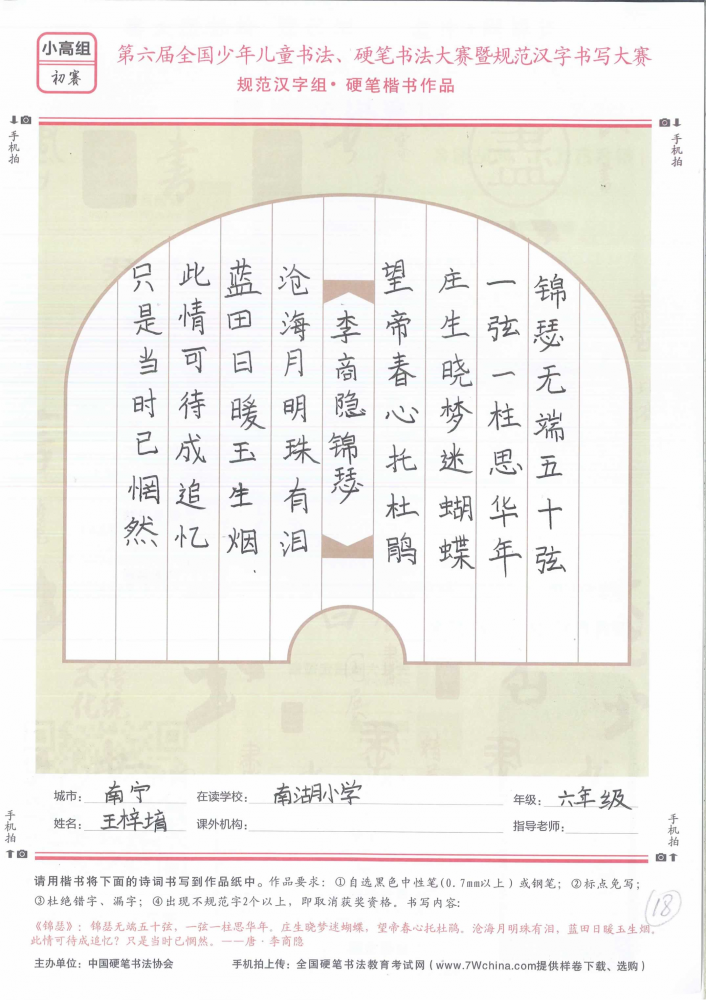 小高组
初赛
第六届全国少年儿童书法、硬笔书法大赛暨规范汉字书写大赛
规范汉字组•硬笔楷书作品
手机拍
手机拍
锦瑟无端五十弦
一弦一柱思华年
庄生晓梦迷蝴蝶
望帝春心托杜鹃
李商隐锦瑟
沧海月明珠有泪
蓝田日暖玉生烟
此情可待成追忆
只是当时已惘然
城市：南宁
在读学校：南湖小学
年级：六年级
姓名：王梓堉
课外机构：
指导老师：
手机拍
手机拍
请用楷书将下面的诗词书写到作品纸中。作品要求：①自选黑色中性笔(0.7mm以上）或钢笔；②标点免写；
③杜绝错字、漏字；④出现不规范字2个以上，即取消获奖资格。书写内容：
18
《锦瑟》：锦瑟无端五十弦，一弦一柱思华年。庄生晓梦迷蝴蝶，望帝春心托杜鹃。沧海月明珠有泪，蓝田日暖玉生烟。
此情可待成追忆？只是当时已惘然。——唐·李商隐
主办单位：中国硬笔书法协会
手机拍上传：全国硬笔书法教育考试网（www.7Wchina.com提供样卷下载、选购）